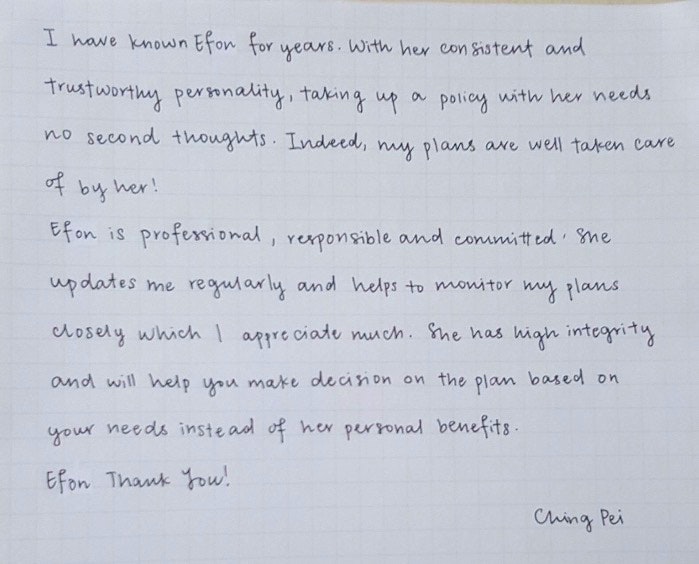 I have known Efon for years. With her consistent and
trustworthy personality, taking up a policy with her needs
no second thoughts. Indeed, my plans are well taken care
of by her!
Efon is professional, responsible and committed. She
updates me regularly and helps to monitor my plans
closely which I appreciate much. She has high integrity
and will help you make decision on the plan based on
your needs instead of her personal benefits.
Efon Thank You!
Ching Pei